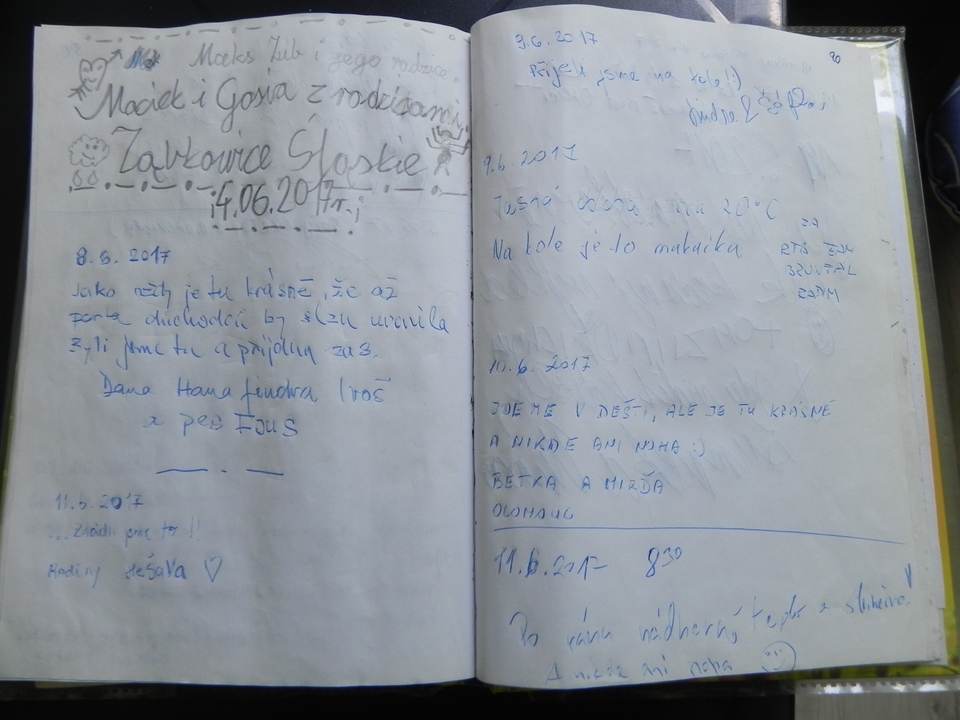 i jego rodzice.
Maciek i Gosia z rodzicami
Ząbkowice Śląskie
14.06.2017r.
8.6. 2017
Jako vždy je tu krásně, že až
parta důchodců by slzu uronila
Byli jsme tu a přijdem zas.
Dana Hana Jindra Ivoš
a pes
11.6.2017
...Zvládli jsme to!!
Rodiny
9.6.2017
20
Přijeli jsme na kole!:)
Jindra
9.6.2017
Jasná obloha 20°C
Na kole je to makačka
ZA
10.6.2017
JDEME V DEŠTI, ALE JE TU KRÁSNĚ
A NIKDE ANI NOHA :)
BETKA A
OLOMOUC
11.6.2017 8³⁰
Po ránu nádherně, teplo a slunečno!
A nikde ani noha